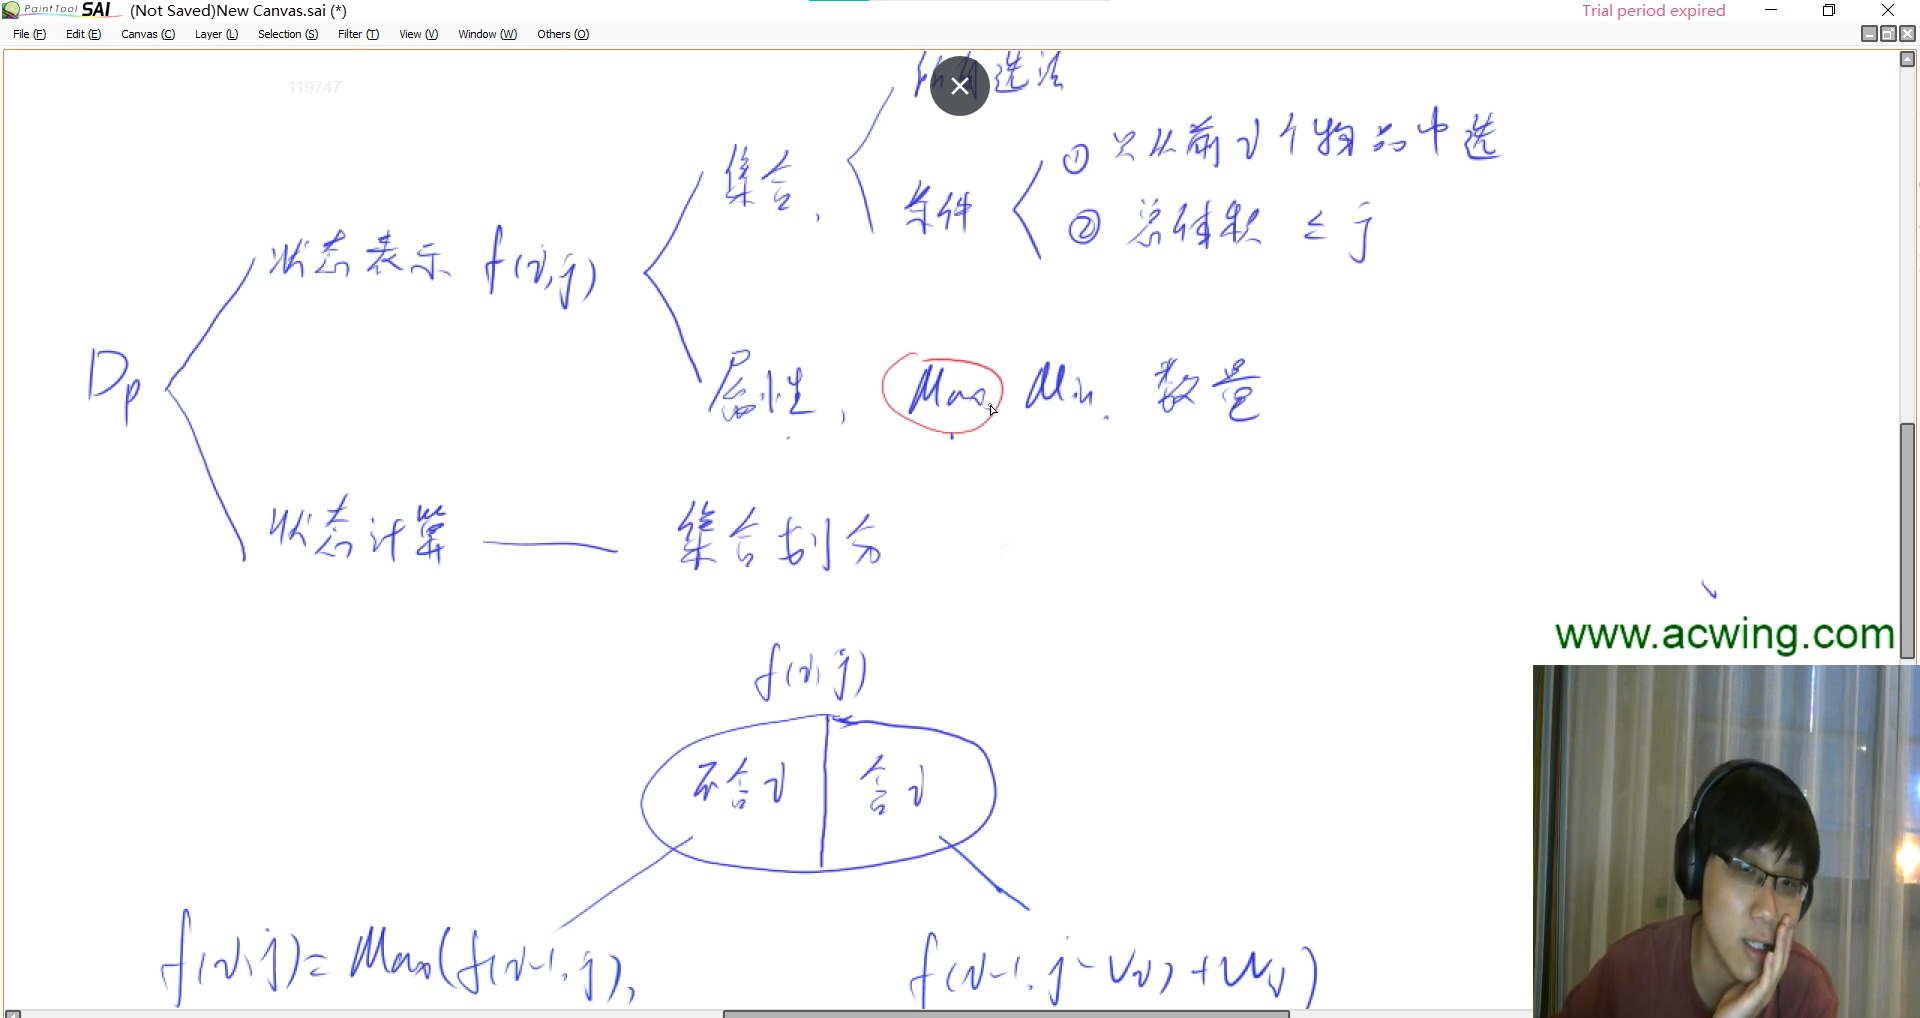 PaintTool SAI (Not Saved)New Canvas.sai (*) Trial period expired
File (F) Edit (E) Canvas (C) Layer (L) Selection (S) Filter (T) View (V) Window (W) Others (O)
119747
所有选法
① 只从前i个物品中选
集合,
条件
② 总体积 ≤ j
状态表示 f(i,j)
Dp
属性, Max, Min, 数量
状态计算 —— 集合划分
www.acwing.com
f(i,j)
不含i 含i
f(i,j)= Max(f(i-1,j), f(i-1,j-Vi)+Wi)